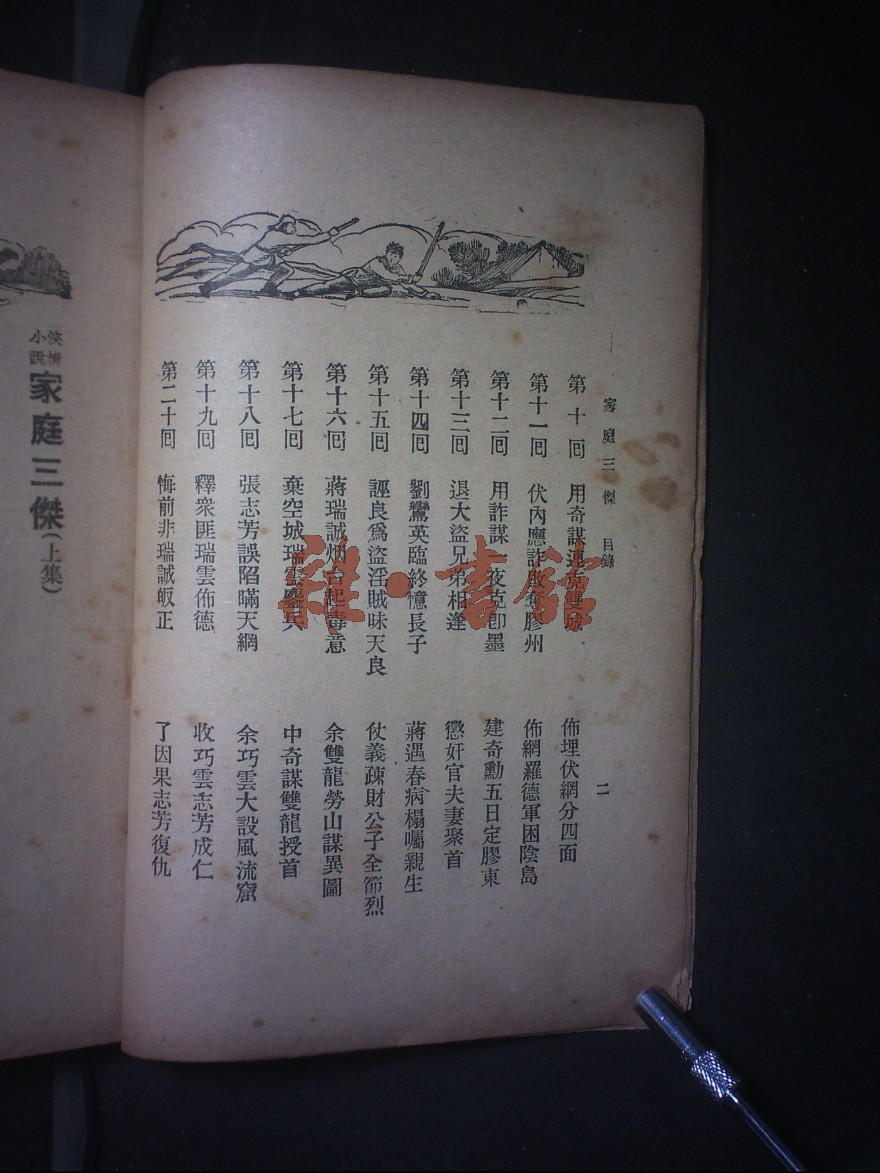 家庭三傑 目錄
二
第十回 用奇謀連克雙城 佈埋伏網分四面
第十一回 伏內應詐敗奪膠州 佈網羅德軍困陰島
第十二回 用詐謀一夜克卽墨 建奇勳五日定膠東
第十三回 退大盜兄弟相逢 懲奸官夫妻聚首
第十四回 劉鸞英臨終憶長子 蔣遇春病榻囑親生
第十五回 誣良爲盜淫賊昧天良 仗義疎財公子全節烈
第十六回 蔣瑞誠烟台起毒意 余雙龍勞山謀異圖
第十七回 棄空城瑞雲鏖兵 中奇謀雙龍授首
第十八回 張志芳誤陷瞞天網 余巧雲大設風流窟
第十九回 釋衆匪瑞雲佈德 收巧雲志芳成仁
第二十回 悔前非瑞誠皈正 了因果志芳復仇
俠情小說
家庭三傑(上集)
雜·書館